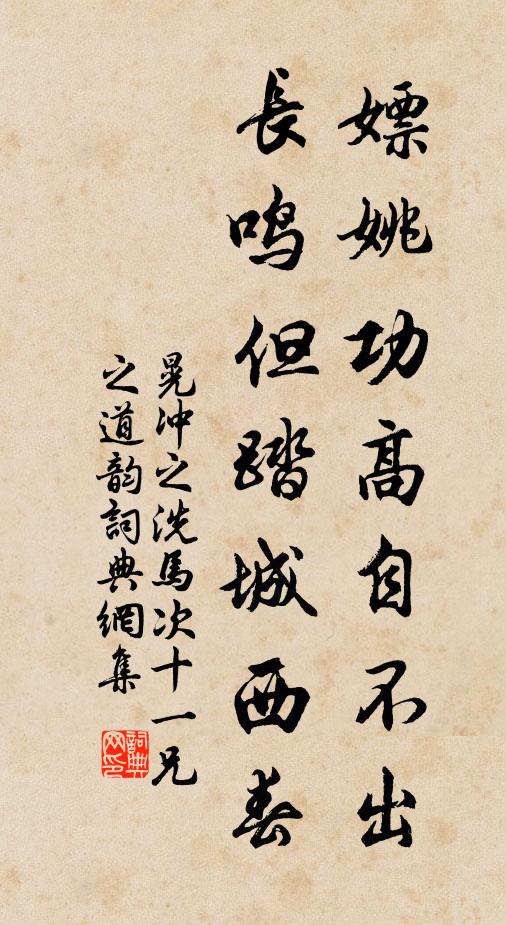 嫖姚功高自不出
長鳴但踏城西春
晁沖之洗馬次十一兄
之道韵詞典網集
詞典网印